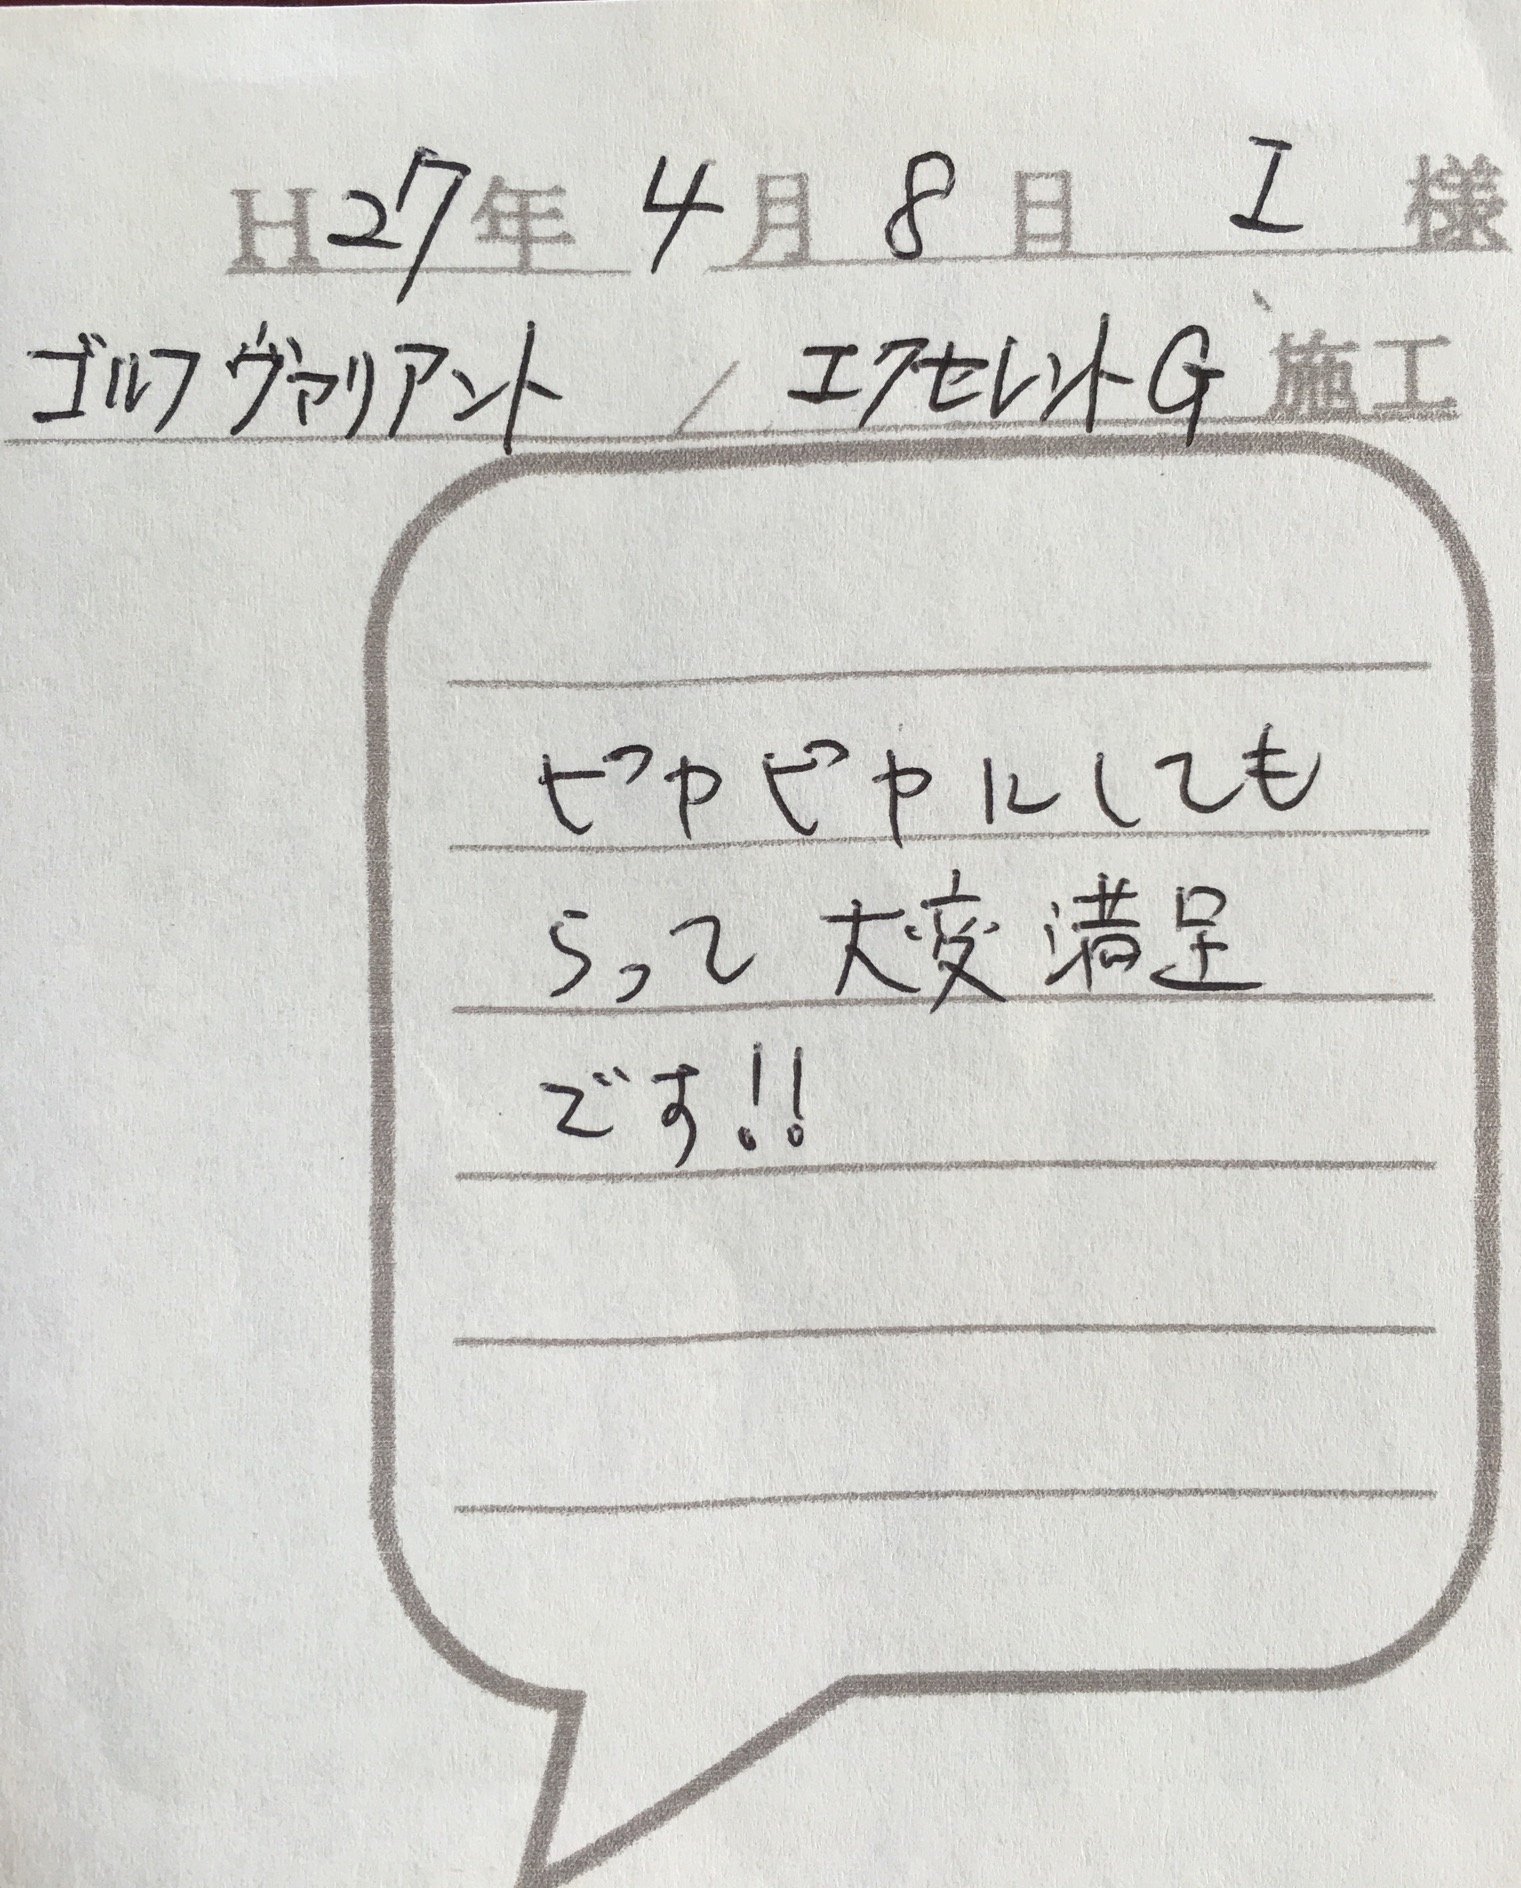 H27年 4月 8日 I 様
ゴルフヴァリアント / エクセレントG 施工
ピカピカにしても
らって 大変満足
です!!